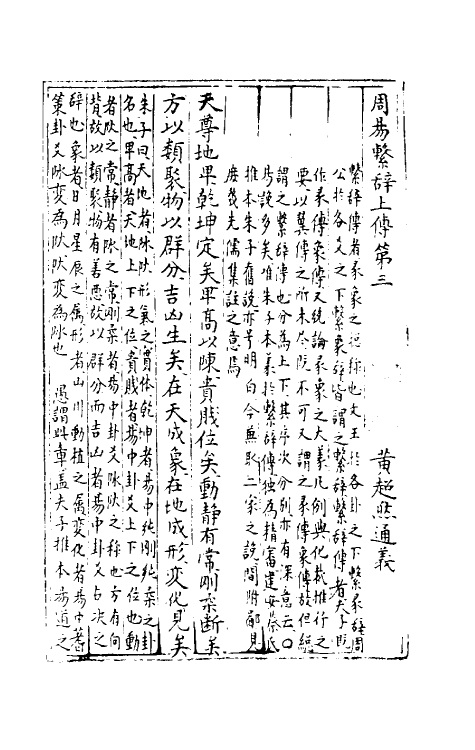 周易繫辭上傳第三
黃超然通義
繫辭傳者彖象之總稱也文王於各卦之下繫彖辭周
公於各爻之下繫象辭皆謂之繫辭繫辭傳者夫子既
作彖傳象傳又統論彖象之大義凡例與化裁推行之
要以翼傳之所未盡既不可又謂之彖傳象傳故但總
謂之繫辭傳也分為上下其序次分別亦有深意云〇
為說多矣唯朱子本義於繫辭傳獨為精審建安蔡氏
推本朱子舊說亦号明白今兼取二家之說間附鄙見
庶幾先儒集註之意焉
天尊地卑乾坤定矣卑高以陳貴賤位矣動靜有常剛柔斷矣
方以類聚物以群分吉凶生矣在天成象在地成形變化見矣
朱子曰天地者陰陽形氣之實体乾坤者易中純剛純柔之卦
名也卑高者天地上下之位貴賤者易中卦爻上下之位也動
者陽之常靜者陰之常剛柔者易中卦爻陰陽之称也方有向
背故以類聚物有善惡故以群分而吉凶者易中卦爻占决之
辭也象者日月星辰之屬形者山川動植之屬變化者易中蓍
策卦爻陰變為陽陽變為陰也 愚謂此章盖夫子推本易道之